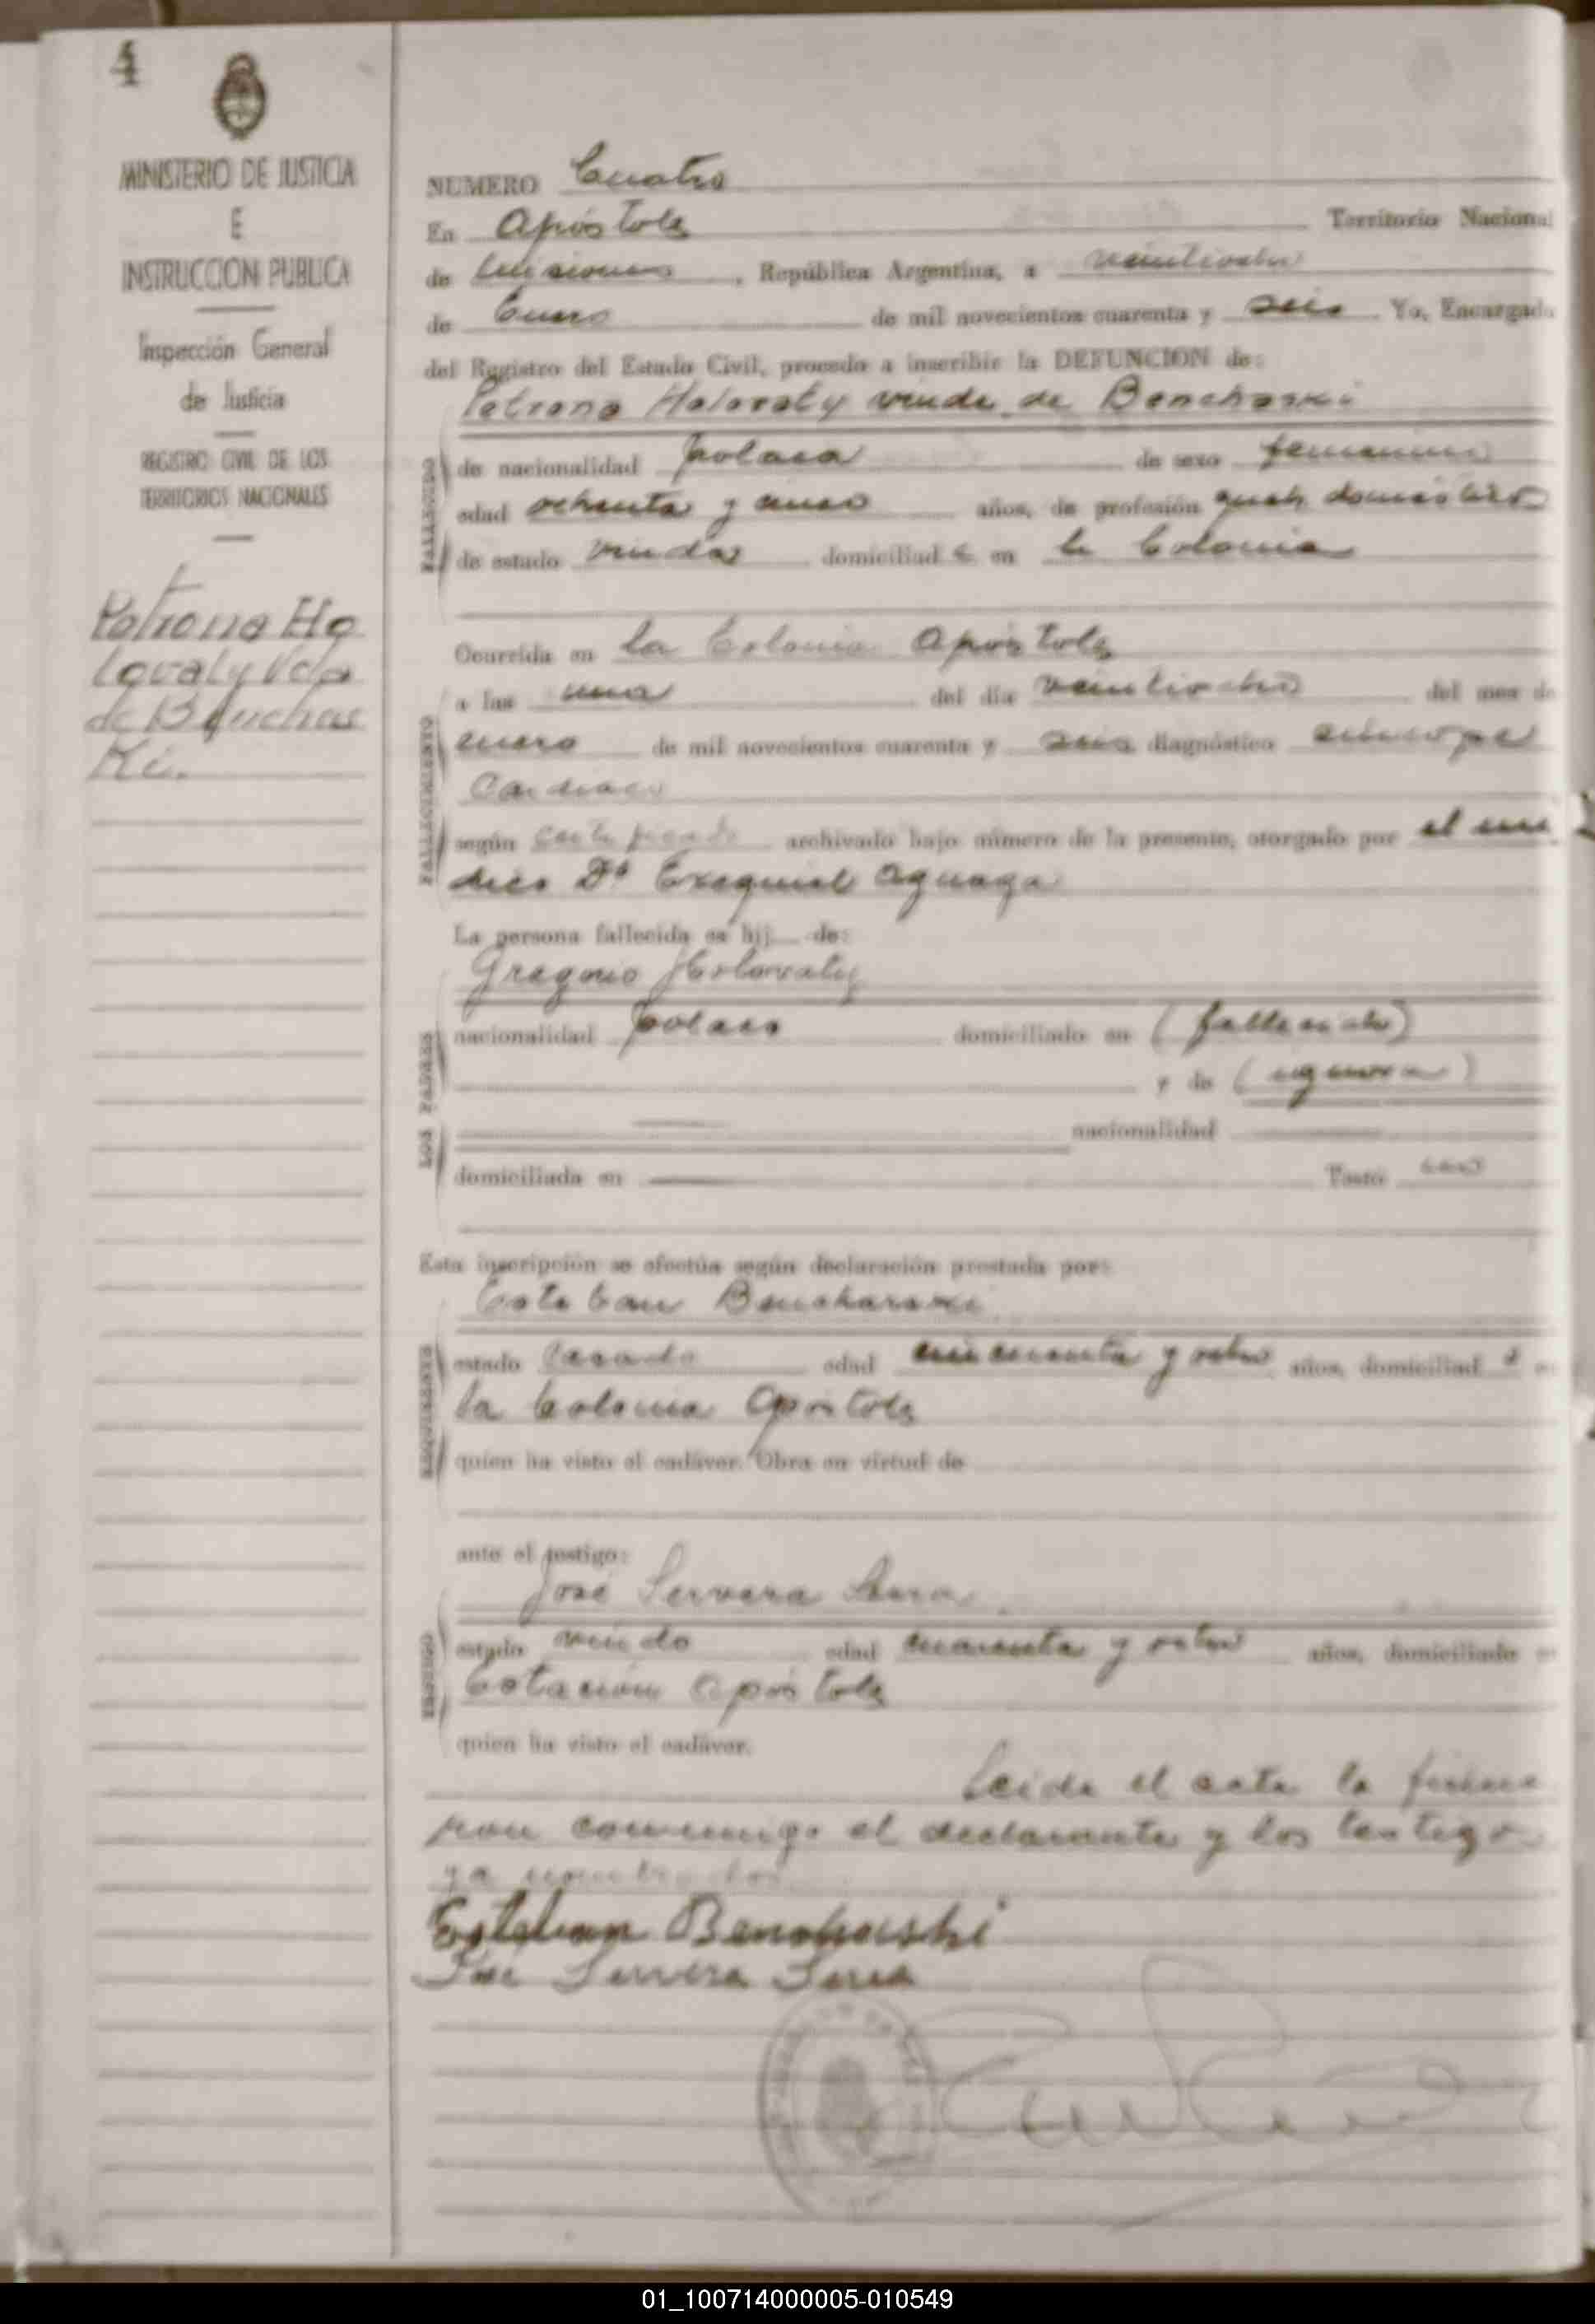 4
MINISTERIO DE JUSTICIA
E
INSTRUCCION PUBLICA
Inspección General
de Justicia
REGISTRO CIVIL DE LOS
TERRITORIOS NACIONALES
Petrona Ho
lovaty Vda
de Benchas
Ki.
NUMERO Cuatro
En Apóstoles Territorio Nacional
de Misiones, República Argentina, a veintiocho
de Enero de mil novecientos cuarenta y seis Yo, Encargado
del Registro del Estado Civil, procedo a inscribir la DEFUNCION de:
Petrona Holovaty viuda de Bencharski
FALLECIDO
de nacionalidad polaca de sexo femenino
edad ochenta y cinco años, de profesión queh. domésticos
de estado viuda domiciliad a en la Colonia
Ocurrida en la Colonia Apóstoles
FALLECIMIENTO
a las una del día veintiocho del mes de
enero de mil novecientos cuarenta y seis diagnóstico síncope
Cardiaco
según certificado archivado bajo número de la presente, otorgado por el mé
dico Dr Exequiel Aguaga
La persona fallecida es hij de:
Gregorio Holovaty
LOS PADRES
nacionalidad polaco domiciliado en (fallecido)
y de (ignora)
nacionalidad
domiciliada en Testó
Esta inscripción se efectúa según declaración prestada por:
Esteban Bencharski
REQUIRENTE
estado Casado edad cincuenta y ocho años, domiciliad o en
la Colonia Apóstoles
quien ha visto el cadáver. Obra en virtud de
ante el testigo:
José Servera Serra
TESTIGO
estado viudo edad cuarenta y ocho años, domiciliado en
Estación Apóstoles
quien ha visto el cadáver.
Leída el acta la firma
ron conmigo el declarante y los testigos
ya nombrados
Esteban Bencharski
José Servera Serra
01_100714000005-010549